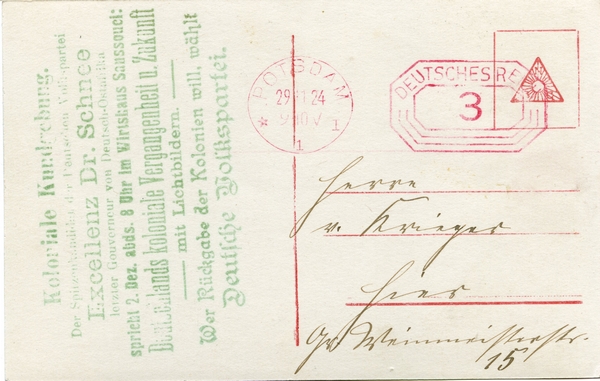 Koloriale Kundgebung.
Der Spitzenkandidat der Deutschen Volkspartei
Excellenz Dr. Schnee
letzter Gouverneur von Deutsch-Ostafrika
spricht 2. Dez. abds. 8 Uhr im Wirtshaus Sanssouci:
Deutschlands koloniale Vergangenheit u. Zukunft
— mit Lichtbildern. —
Wer Rückgabe der Kolonien will, wählt
Deutsche Volkspartei.
POTSDAM
29 11 24
9-10V
* 1
1
DEUTSCHES REI
3
Herrn
v. Krieger
Hier
Gr Weinmeisterstr.
15